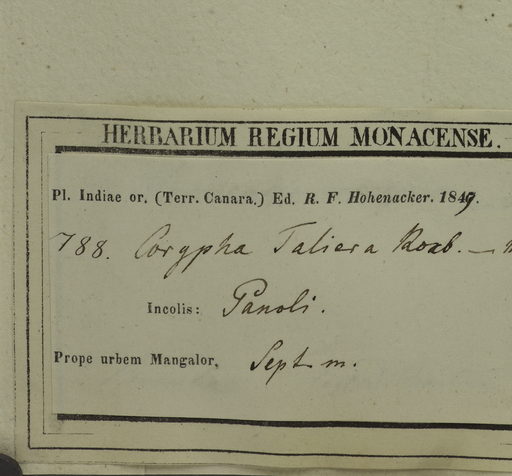 HERBARIUM REGIUM MONACENSE.
Pl. Indiae or. (Terr. Canara.) Ed. R. F. Hohenacker. 1849.
788. Corypha Taliera Roxb. —
Incolis: Panoli.
Prope urbem Mangalor, Sept. m.